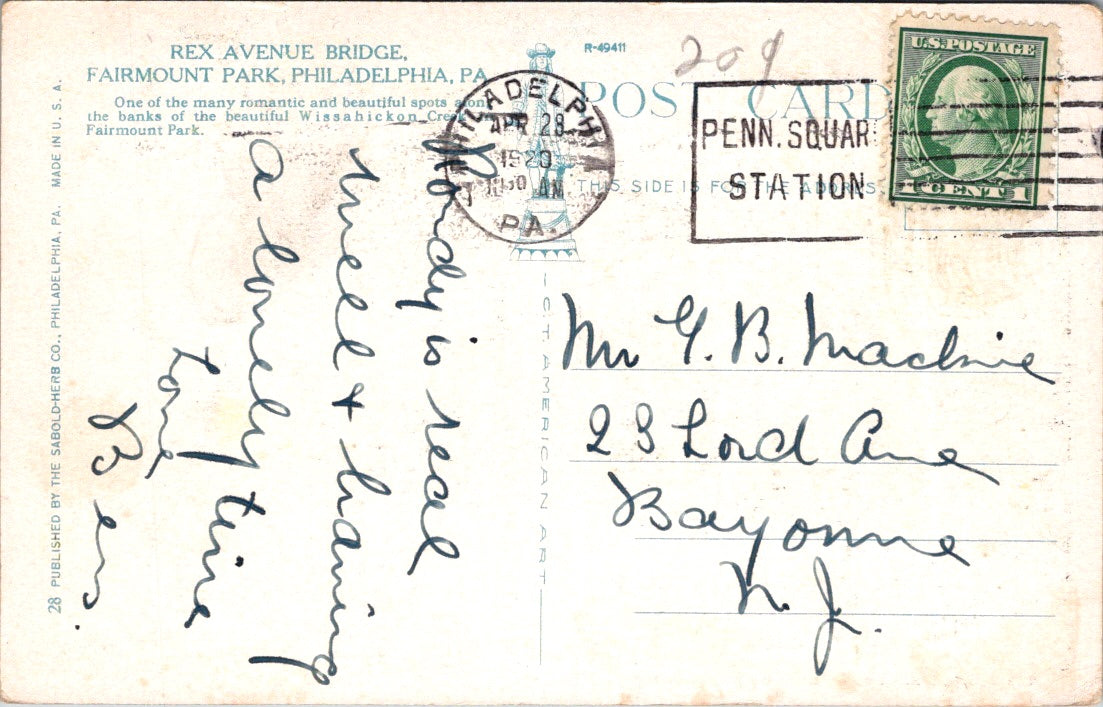 REX AVENUE BRIDGE,
FAIRMOUNT PARK, PHILADELPHIA, PA.
One of the many romantic and beautiful spots along
the banks of the beautiful Wissahickon Creek
Fairmount Park.
R-49411
209
POST CARD
THIS SIDE IS FOR THE ADDRESS
PHILADELPHIA
APR 28
1920
30 AM
PA.
PENN. SQUAR
STATION
U.S. POSTAGE
1 CENT 1
is real
well & having
a lonely time
Love
Ben.
Mr G. B. Mackie
23 Lord Ave
Bayonne
N. J.
C. T. AMERICAN ART
28 PUBLISHED BY THE SABOLD-HERB CO., PHILADELPHIA, PA. MADE IN U. S. A.